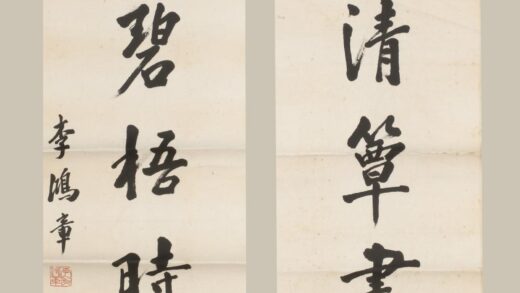 清簟
碧梧時
李鴻章